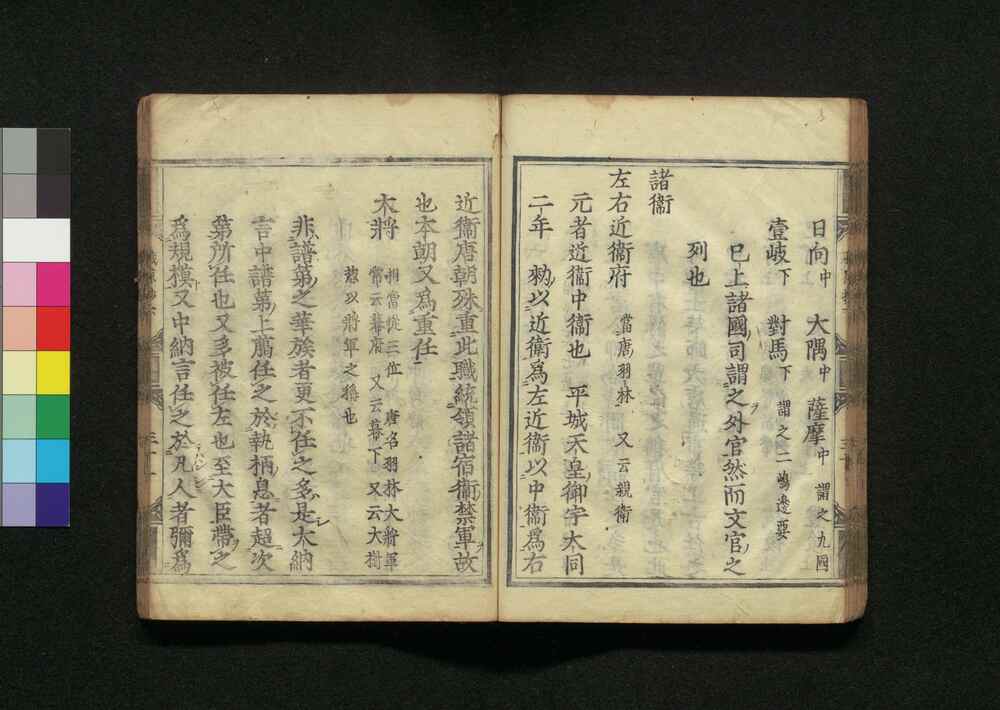 日向中　大隅中　薩摩中　謂之九國
壹岐下　對馬下　謂之二嶋邊要
已上諸國司謂之外官然而文官之
列也
諸衞
左右近衞府　當唐羽林　又云親衛
元者近衞中衞也　平城天皇御宇大同
二年　勑以近衛為左近衞以中衞爲右
近衞唐朝殊重此職統領諸宿衞禁軍故
也本朝又爲重任
大將　相當從三位　唐名羽林大將軍
常云幕府　又云幕下　又云大樹
惣以將軍之稱也
非譜第之華族者更不任之多是大納
言中譜第上﨟任之於執柄息者超次
第所任也又多被任左也至大臣帶之
爲規模又中納言任之於凡人者彌爲